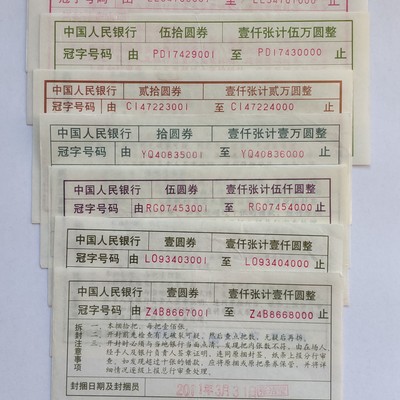 中国人民银行 伍拾圆券 壹仟张计伍万圆整
冠字号码 由 PD17429001 至 PD17430000 止
中国人民银行 贰拾圆券 壹仟张计贰万圆整
冠字号码 由 CI47223001 至 CI47224000 止
中国人民银行 拾圆券 壹仟张计壹万圆整
冠字号码 由 YQ40835001 至 YQ40836000 止
中国人民银行 伍圆券 壹仟张计伍仟圆整
冠字号码 由 RG07453001 至 RG07454000 止
中国人民银行 壹圆券 壹仟张计壹仟圆整
冠字号码 由 L093403001 至 L093404000 止
中国人民银行 壹圆券 壹仟张计壹仟圆整
冠字号码 由 Z4B8667001 至 Z4B8668000 止
拆封注意事项
一、本捆拾把，每把壹佰张。
二、开封前先检查有无破裂可疑，然后查点把数，无疑后再拆。
三、开封时必须与当地银行当面点清，发现把内张数不符，由在场人
经手人及银行负责人签章证明，连同原捆封签、纸条上报分行审
查，如发现超过十张的错款，应将原捆或原把票券保管，并将详
细情况连续上报总行审查处理。
封捆日期及封捆员 2011年3月31日